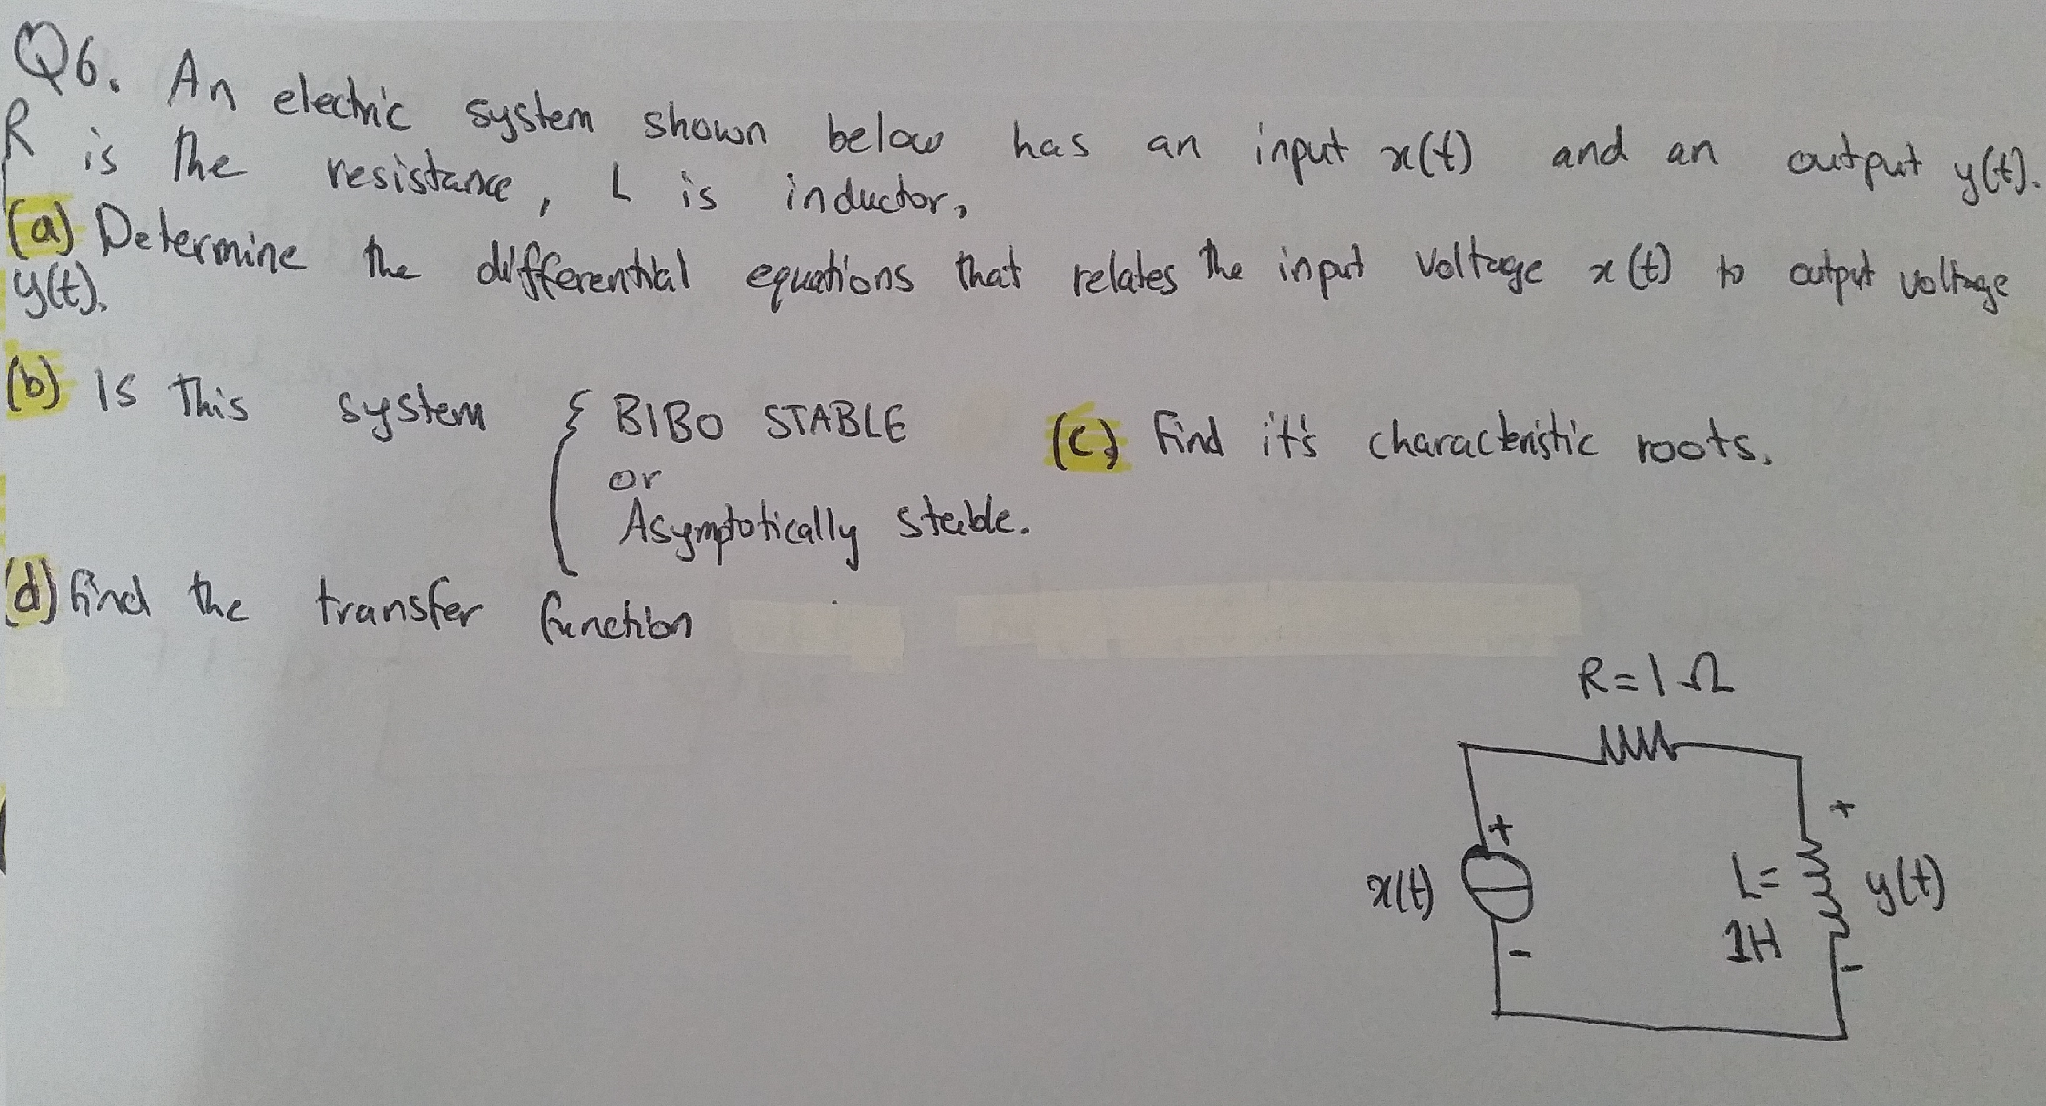 Q6. An electric system shown below has an input x(t) and an output y(t).
R is the resistance, L is inductor,
(a) Determine the differential equations that relates the input voltage x(t) to output voltage
y(t).
(b) Is this system { BIBO STABLE
or
Asymptotically stable.
(c) Find it's characteristic roots.
(d) find the transfer function
R=1Ω
+
+
x(t)
L=
y(t)
1H
-
-